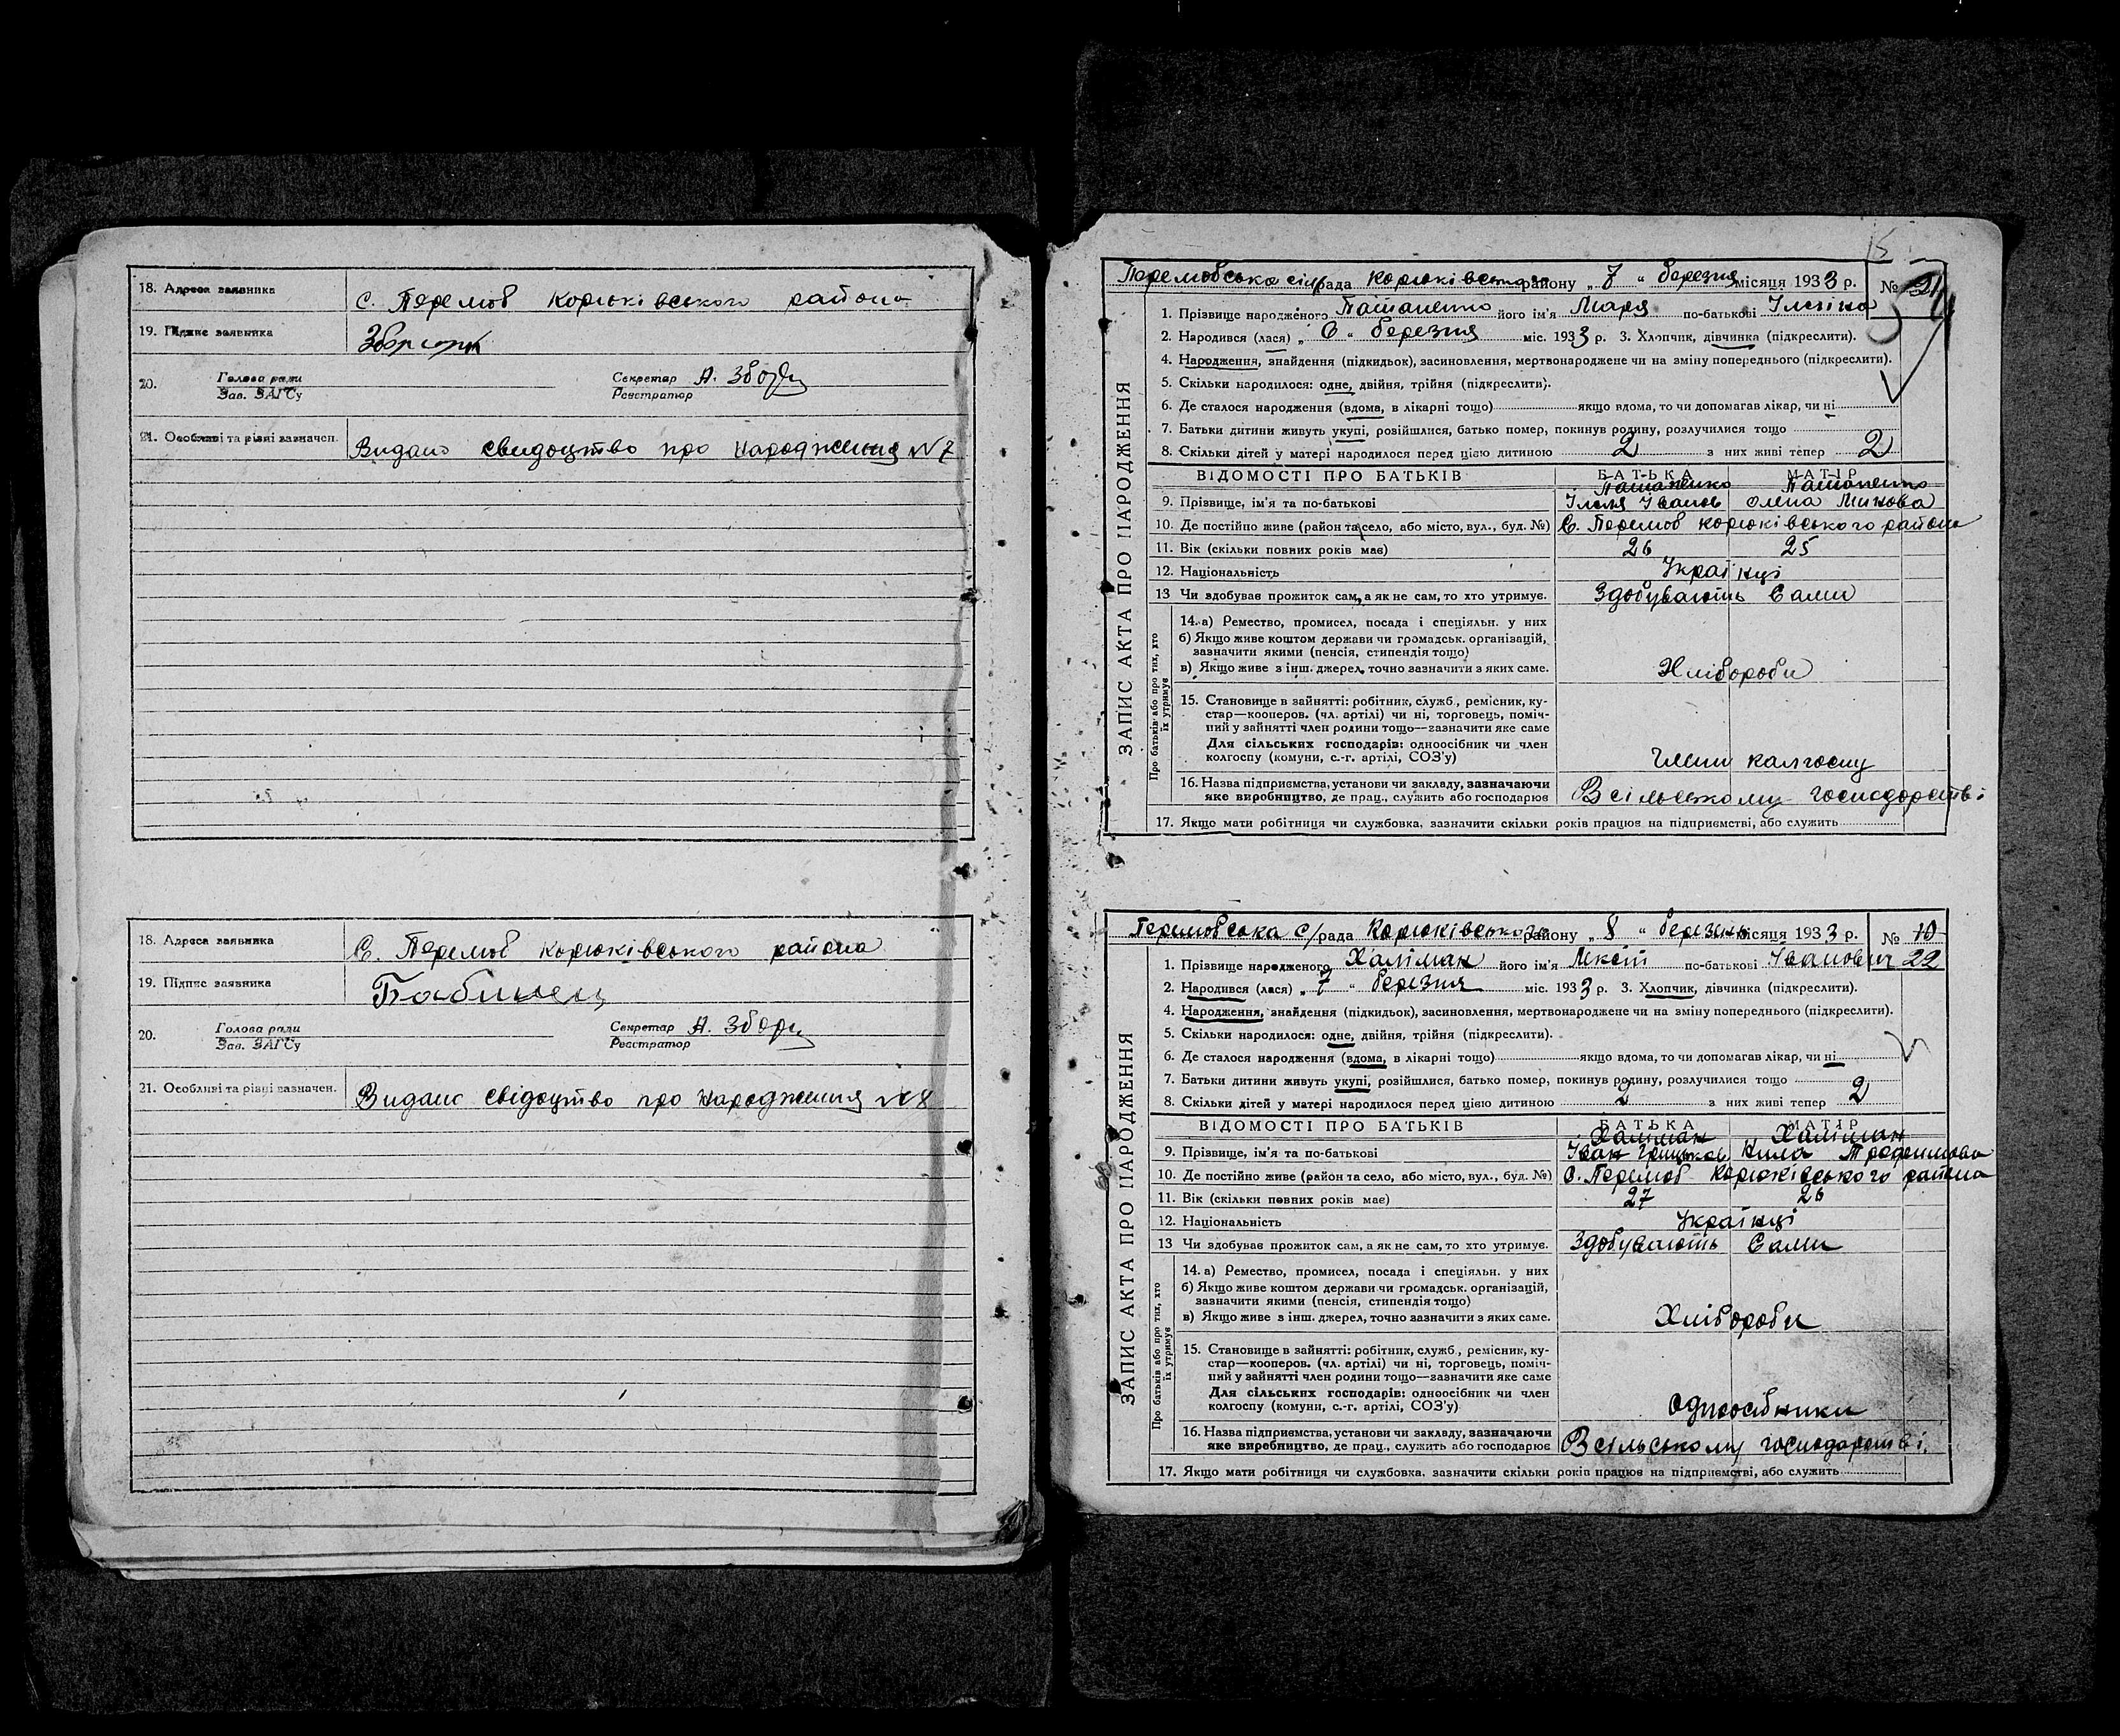 18. Адреса заявника с. Перемоб Корюківського района
19. Підпис заявника
20. Голова ради Секретар А.
Зав. ЗАГСу Реєстратор
21. Особливі та різні зазначен. Видано свидоцтво про народження №7
18. Адреса заявника С. Перемоб Корюківського района
19. Підпис заявника Бабинец
20. Голова ради Секретар А.
Зав. ЗАГСу Реєстратор
21. Особливі та різні зазначен. Видано свідоцтво про народження №8
ЗАПИС АКТА ПРО НАРОДЖЕННЯ
Перемобська сіл/рада Корюківського району „ 7 “ березня місяця 1933 р. №
1. Прізвище народженого його ім'я Маря по-батькові
2. Народився (лася) „ 6 “ березня міс. 1933 р. 3. Хлопчик, дівчинка (підкреслити).
4. Народження, знайдення (підкидьок), засиновлення, мертвонароджене чи на зміну попереднього (підкреслити).
5. Скільки народилося: одне, двійня, трійня (підкреслити).
6. Де сталося народження (вдома, в лікарні тощо) якщо вдома, то чи допомагав лікар, чи ні
7. Батьки дитини живуть укупі, розійшлися, батько помер, покинув родину, розлучилися тощо
8. Скільки дітей у матері народилося перед цією дитиною 2 з них живі тепер 2
ВІДОМОСТІ ПРО БАТЬКІВ БАТЬКА МАТІР
9. Прізвище, ім'я та по-батькові Іванов Олена
10. Де постійно живе (район та село, або місто, вул., буд. №) С. Перемоб Корюківського района
11. Вік (скільки повних років має) 26 25
12. Національність Українці
13 Чи здобуває прожиток сам, а як не сам, то хто утримує. Здобувають Сами
Про батьків або про тих, хто їх утримує
14. а) Ремество, промисел, посада і спеціяльн. у них
б) Якщо живе коштом держави чи громадськ. організацій,
зазначити якими (пенсія, стипендія тощо)
в) Якщо живе з інш. джерел, точно зазначити з яких саме. Хлібороби
15. Становище в зайнятті: робітник, служб., ремісник, ку-
стар—кооперов. (чл. артілі) чи ні, торговець, поміч-
ний у зайнятті член родини тощо—зазначити яке саме
Для сільських господарів: одноосібник чи член
колгоспу (комуни, с.-г. артілі, СОЗ'у) Члени калгоспу
16. Назва підприємства, установи чи закладу, зазначаючи
яке виробництво, де прац., служить або господарює Всільському господарстві
17. Якщо мати робітниця чи службовка, зазначити скільки років працює на підприємстві, або служить
ЗАПИС АКТА ПРО НАРОДЖЕННЯ
Перемобська С/рада Корюківського району „ 8 “ березня місяця 1933 р. № 10
1. Прізвище народженого Халіман його ім'я по-батькові Іванович 22
2. Народився (лася) „ 7 “ березня міс. 1933 р. 3. Хлопчик, дівчинка (підкреслити).
4. Народження, знайдення (підкидьок), засиновлення, мертвонароджене чи на зміну попереднього (підкреслити).
5. Скільки народилося: одне, двійня, трійня (підкреслити).
6. Де сталося народження (вдома, в лікарні тощо) якщо вдома, то чи допомагав лікар, чи ні
7. Батьки дитини живуть укупі, розійшлися, батько помер, покинув родину, розлучилися тощо
8. Скільки дітей у матері народилося перед цією дитиною 2 з них живі тепер 2
ВІДОМОСТІ ПРО БАТЬКІВ БАТЬКА МАТІР
Халіман Халіман
9. Прізвище, ім'я та по-батькові Іван
10. Де постійно живе (район та село, або місто, вул., буд. №) С. Перемоб Корюківського района
11. Вік (скільки повних років має) 27 26
12. Національність Українці
13 Чи здобуває прожиток сам, а як не сам, то хто утримує. Здобувають Сами
Про батьків або про тих, хто їх утримує
14. а) Ремество, промисел, посада і спеціяльн. у них
б) Якщо живе коштом держави чи громадськ. організацій,
зазначити якими (пенсія, стипендія тощо)
в) Якщо живе з інш. джерел, точно зазначити з яких саме. Хлібороби
15. Становище в зайнятті: робітник, служб., ремісник, ку-
стар—кооперов. (чл. артілі) чи ні, торговець, поміч-
ний у зайнятті член родини тощо—зазначити яке саме
Для сільських господарів: одноосібник чи член
колгоспу (комуни, с.-г. артілі, СОЗ'у) Одноосібники
16. Назва підприємства, установи чи закладу, зазначаючи
яке виробництво, де прац., служить або господарює Всільському господарстві.
17. Якщо мати робітниця чи службовка, зазначити скільки років працює на підприємстві, або служить